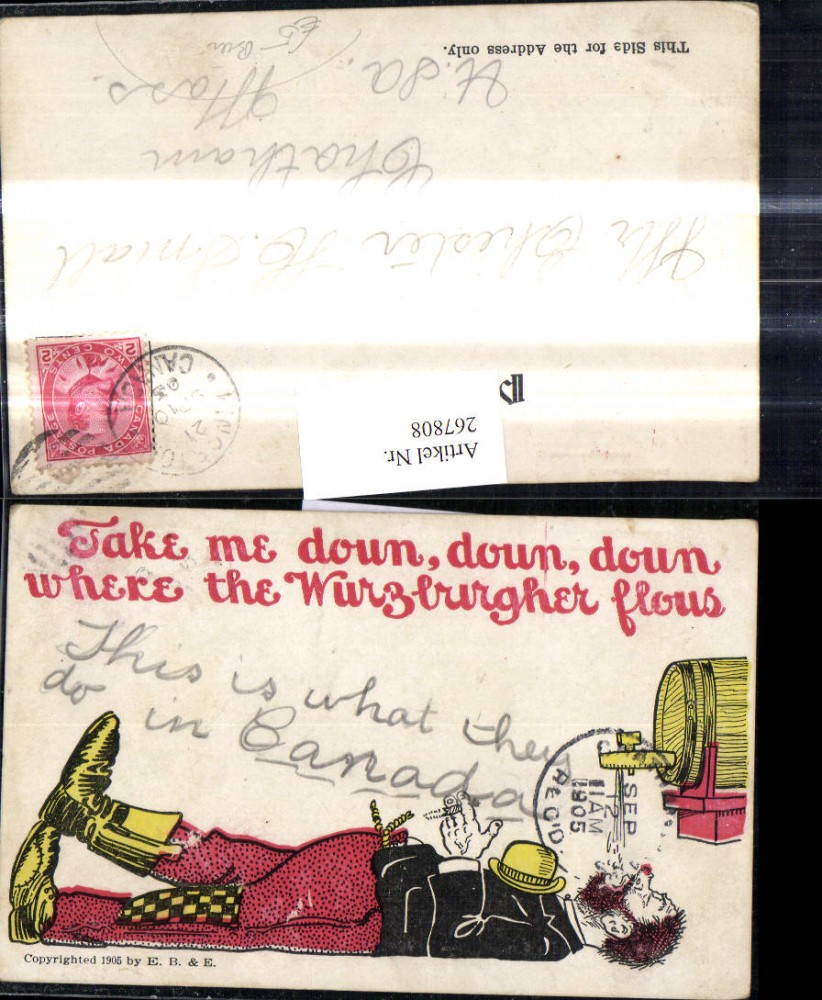 This Side for the Address only.
U.S.A.
Mass.
Chatham
Mr Chester H. Small
2 TWO CENTS 2
CANADA POSTAGE
CANADA
Artikel Nr.
267808
Take me doun, doun, doun
where the Wurzburgher flous
This is what they
do in Canada
SEP
12
11 AM
1905
REC'D.
Copyrighted 1905 by E. B. & E.